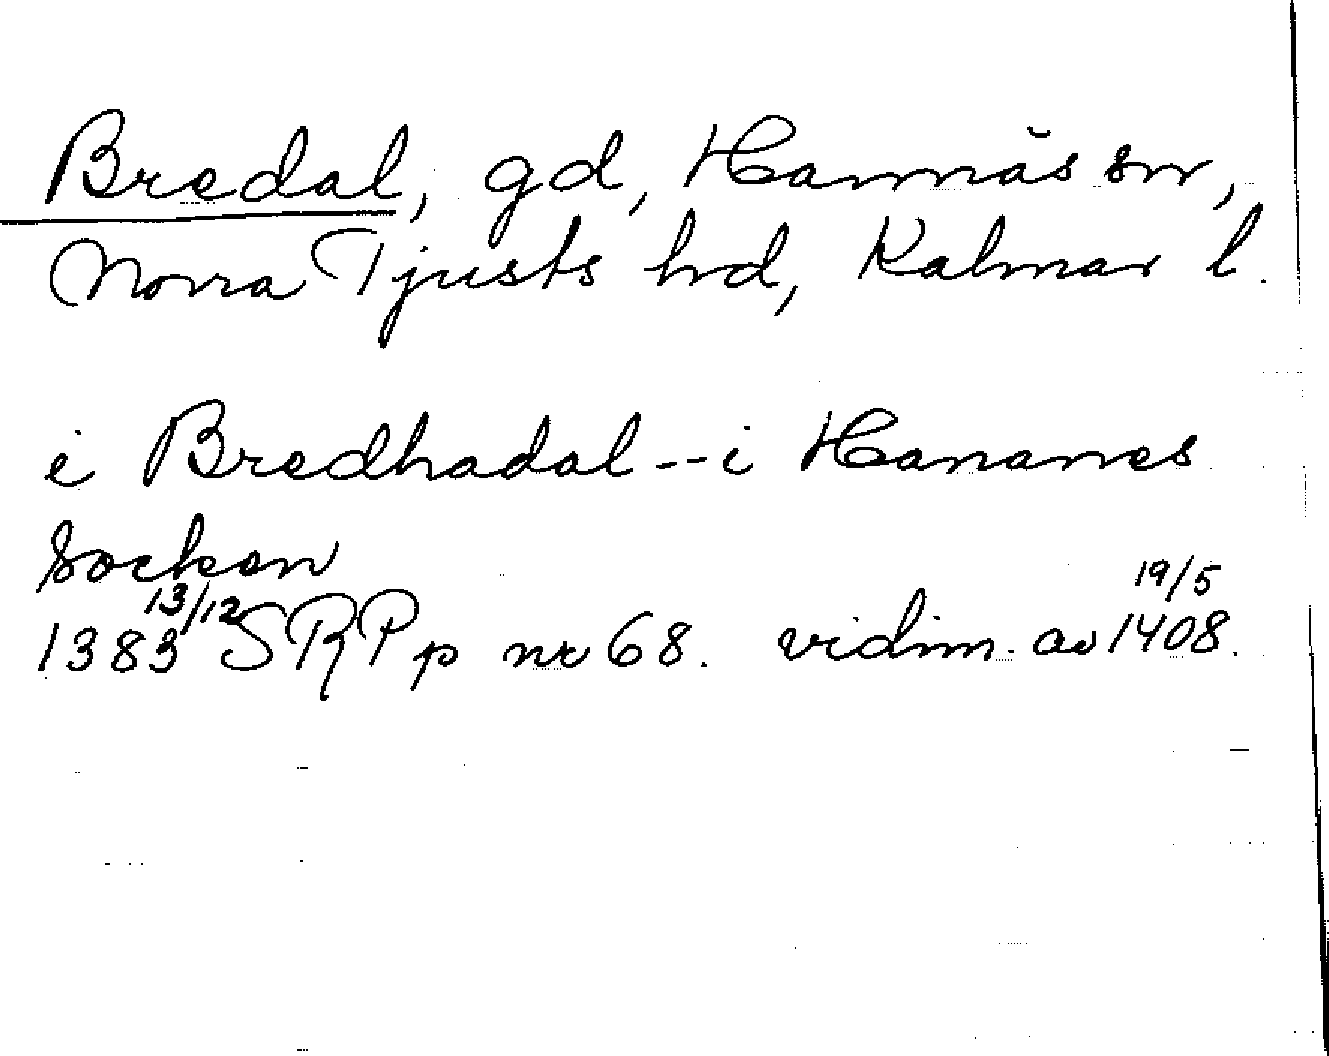 Bredal, gd, Hannäs sn,
Norra Tjusts hd, Kalmar l.
i Bredhadal -- i Hananes
Socken
1383 13/12 SRPp nr 68. vidim. av 1408 19/5.